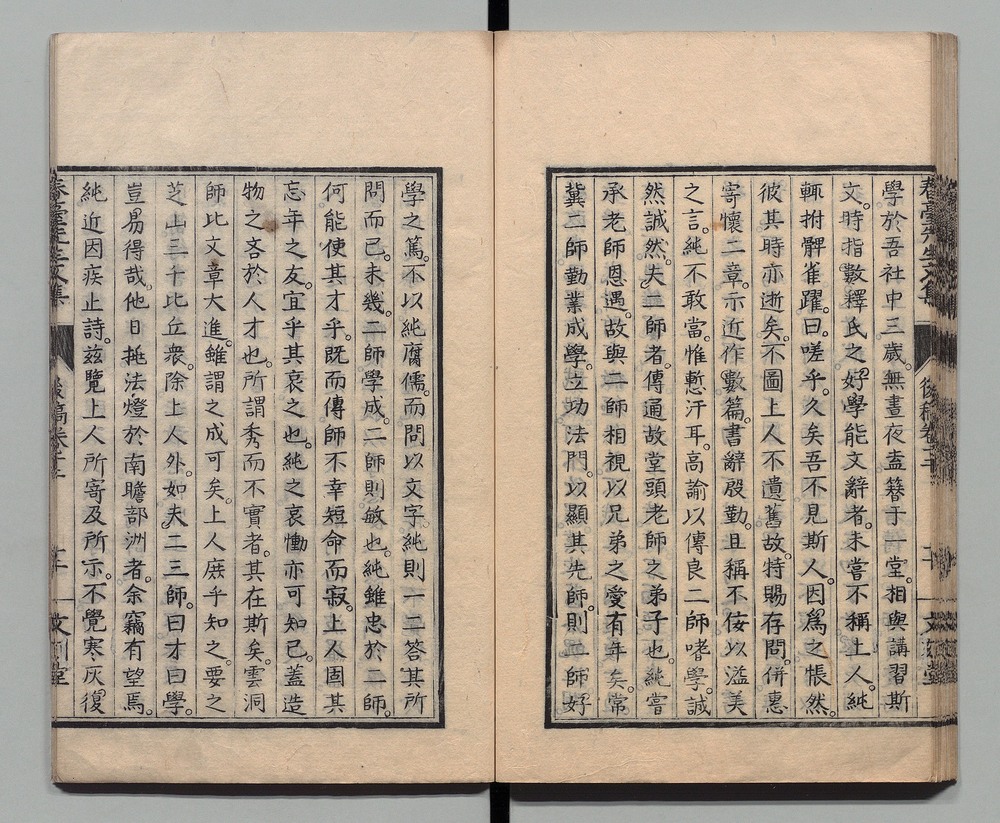 學於吾社中三歲。無晝夜盍簪于一堂。相與講習斯
文。時指數釋氏之好學能文辭者。未嘗不稱上人。純
輒拊髀雀躍。曰。嗟乎。久矣吾不見斯人。因爲之悵然。
彼其時亦逝矣。不圖上人不遺舊故。特賜存問。併惠
寄懷二章。示近作數篇。書辭殷勤。且稱不佞以溢美
之言。純不敢當。惟慙汗耳。高諭以傳良二師嗜學。誠
然誠然。夫二師者。傳通故堂頭老師之弟子也。純嘗
承老師恩遇。故與二師相視以兄弟之愛有年矣。常
冀二師勤業成學。立功法門。以顯其先師。則二師好
學之篤。不以純腐儒。而問以文字。純則一二答其所
問而已。未幾。二師學成。二師則敏也。純雖忠於二師。
何能使其才乎。既而傳師不幸短命而寂。上人固其
忘年之友。宜乎其哀之也。純之哀慟亦可知已。蓋造
物之吝於人才也。所謂秀而不實者。其在斯矣。雲洞
師比文章大進。雖謂之成可矣。上人庶乎知之。要之
芝山三千比丘衆。除上人外。如夫二三師。曰才曰學。
豈易得哉。他日挑法燈於南瞻部洲者。余竊有望焉。
純近因疾止詩。茲覽上人所寄及所示。不覺寒灰復
春臺先生文集
後稿卷